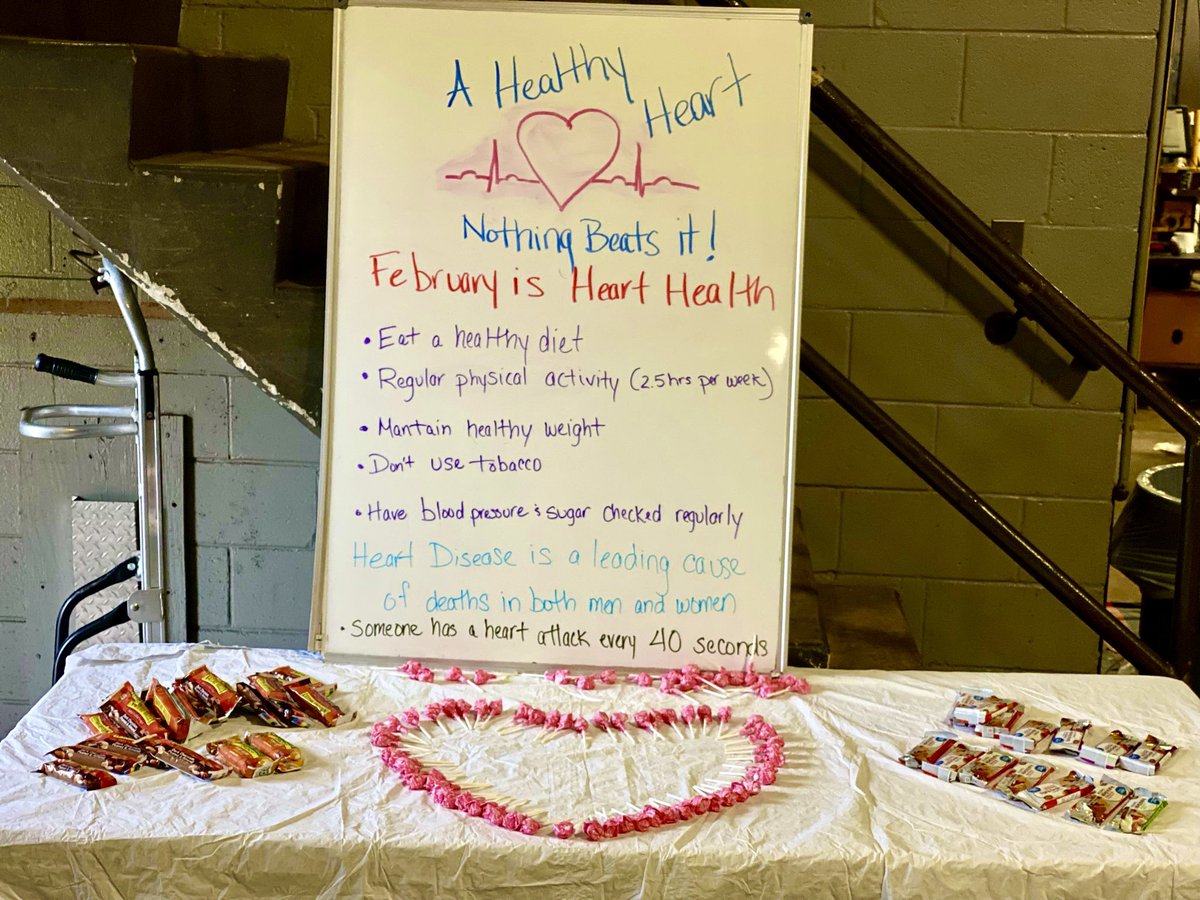 A Healthy Heart
Nothing Beats it!
February is Heart Health
• Eat a healthy diet
• Regular physical activity (2.5hrs per week)
• Mantain healthy weight
• Don't use tobacco
• Have blood pressure & sugar checked regularly
Heart Disease is a leading cause
of deaths in both men and women
• Someone has a heart attack every 40 seconds